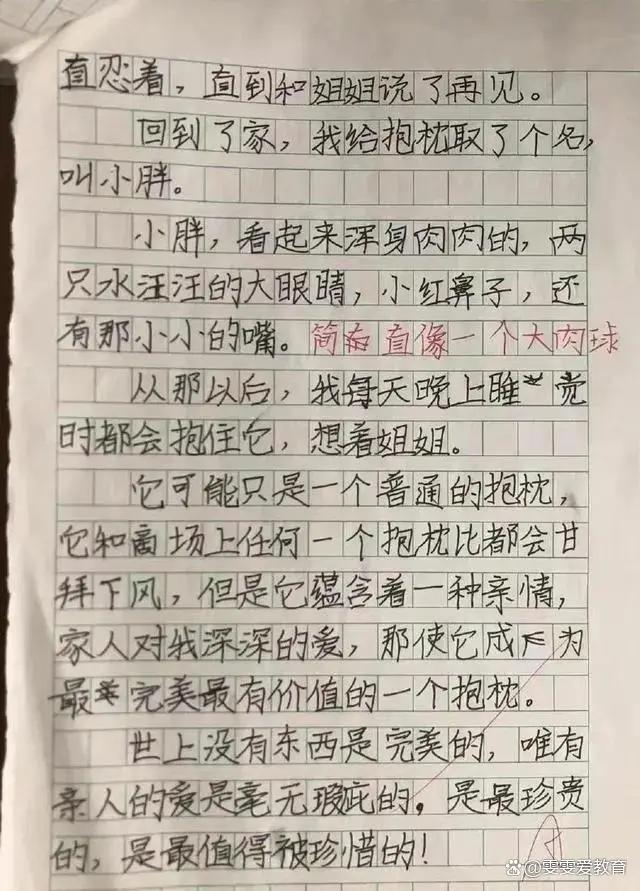 直恋着，直到和姐姐说了再见。
回到了家，我给抱枕取了个名，
叫小胖。
小胖，看起来浑身肉肉的，两
只水汪汪的大眼睛，小红鼻子，还
有那小小的嘴。简直像一个大肉球
从那以后，我每天晚上睡觉
时都会抱住它，想着姐姐。
它可能只是一个普通的抱枕，
它和商场上任何一个抱枕比都会甘
拜下风，但是它蕴含着一种亲情，
家人对我深深的爱，那使它成为
最完美最有价值的一个抱枕。
世上没有东西是完美的，唯有
亲人的爱是毫无瑕疵的，是最珍贵
的，是最值得被珍惜的！
雯雯爱教育